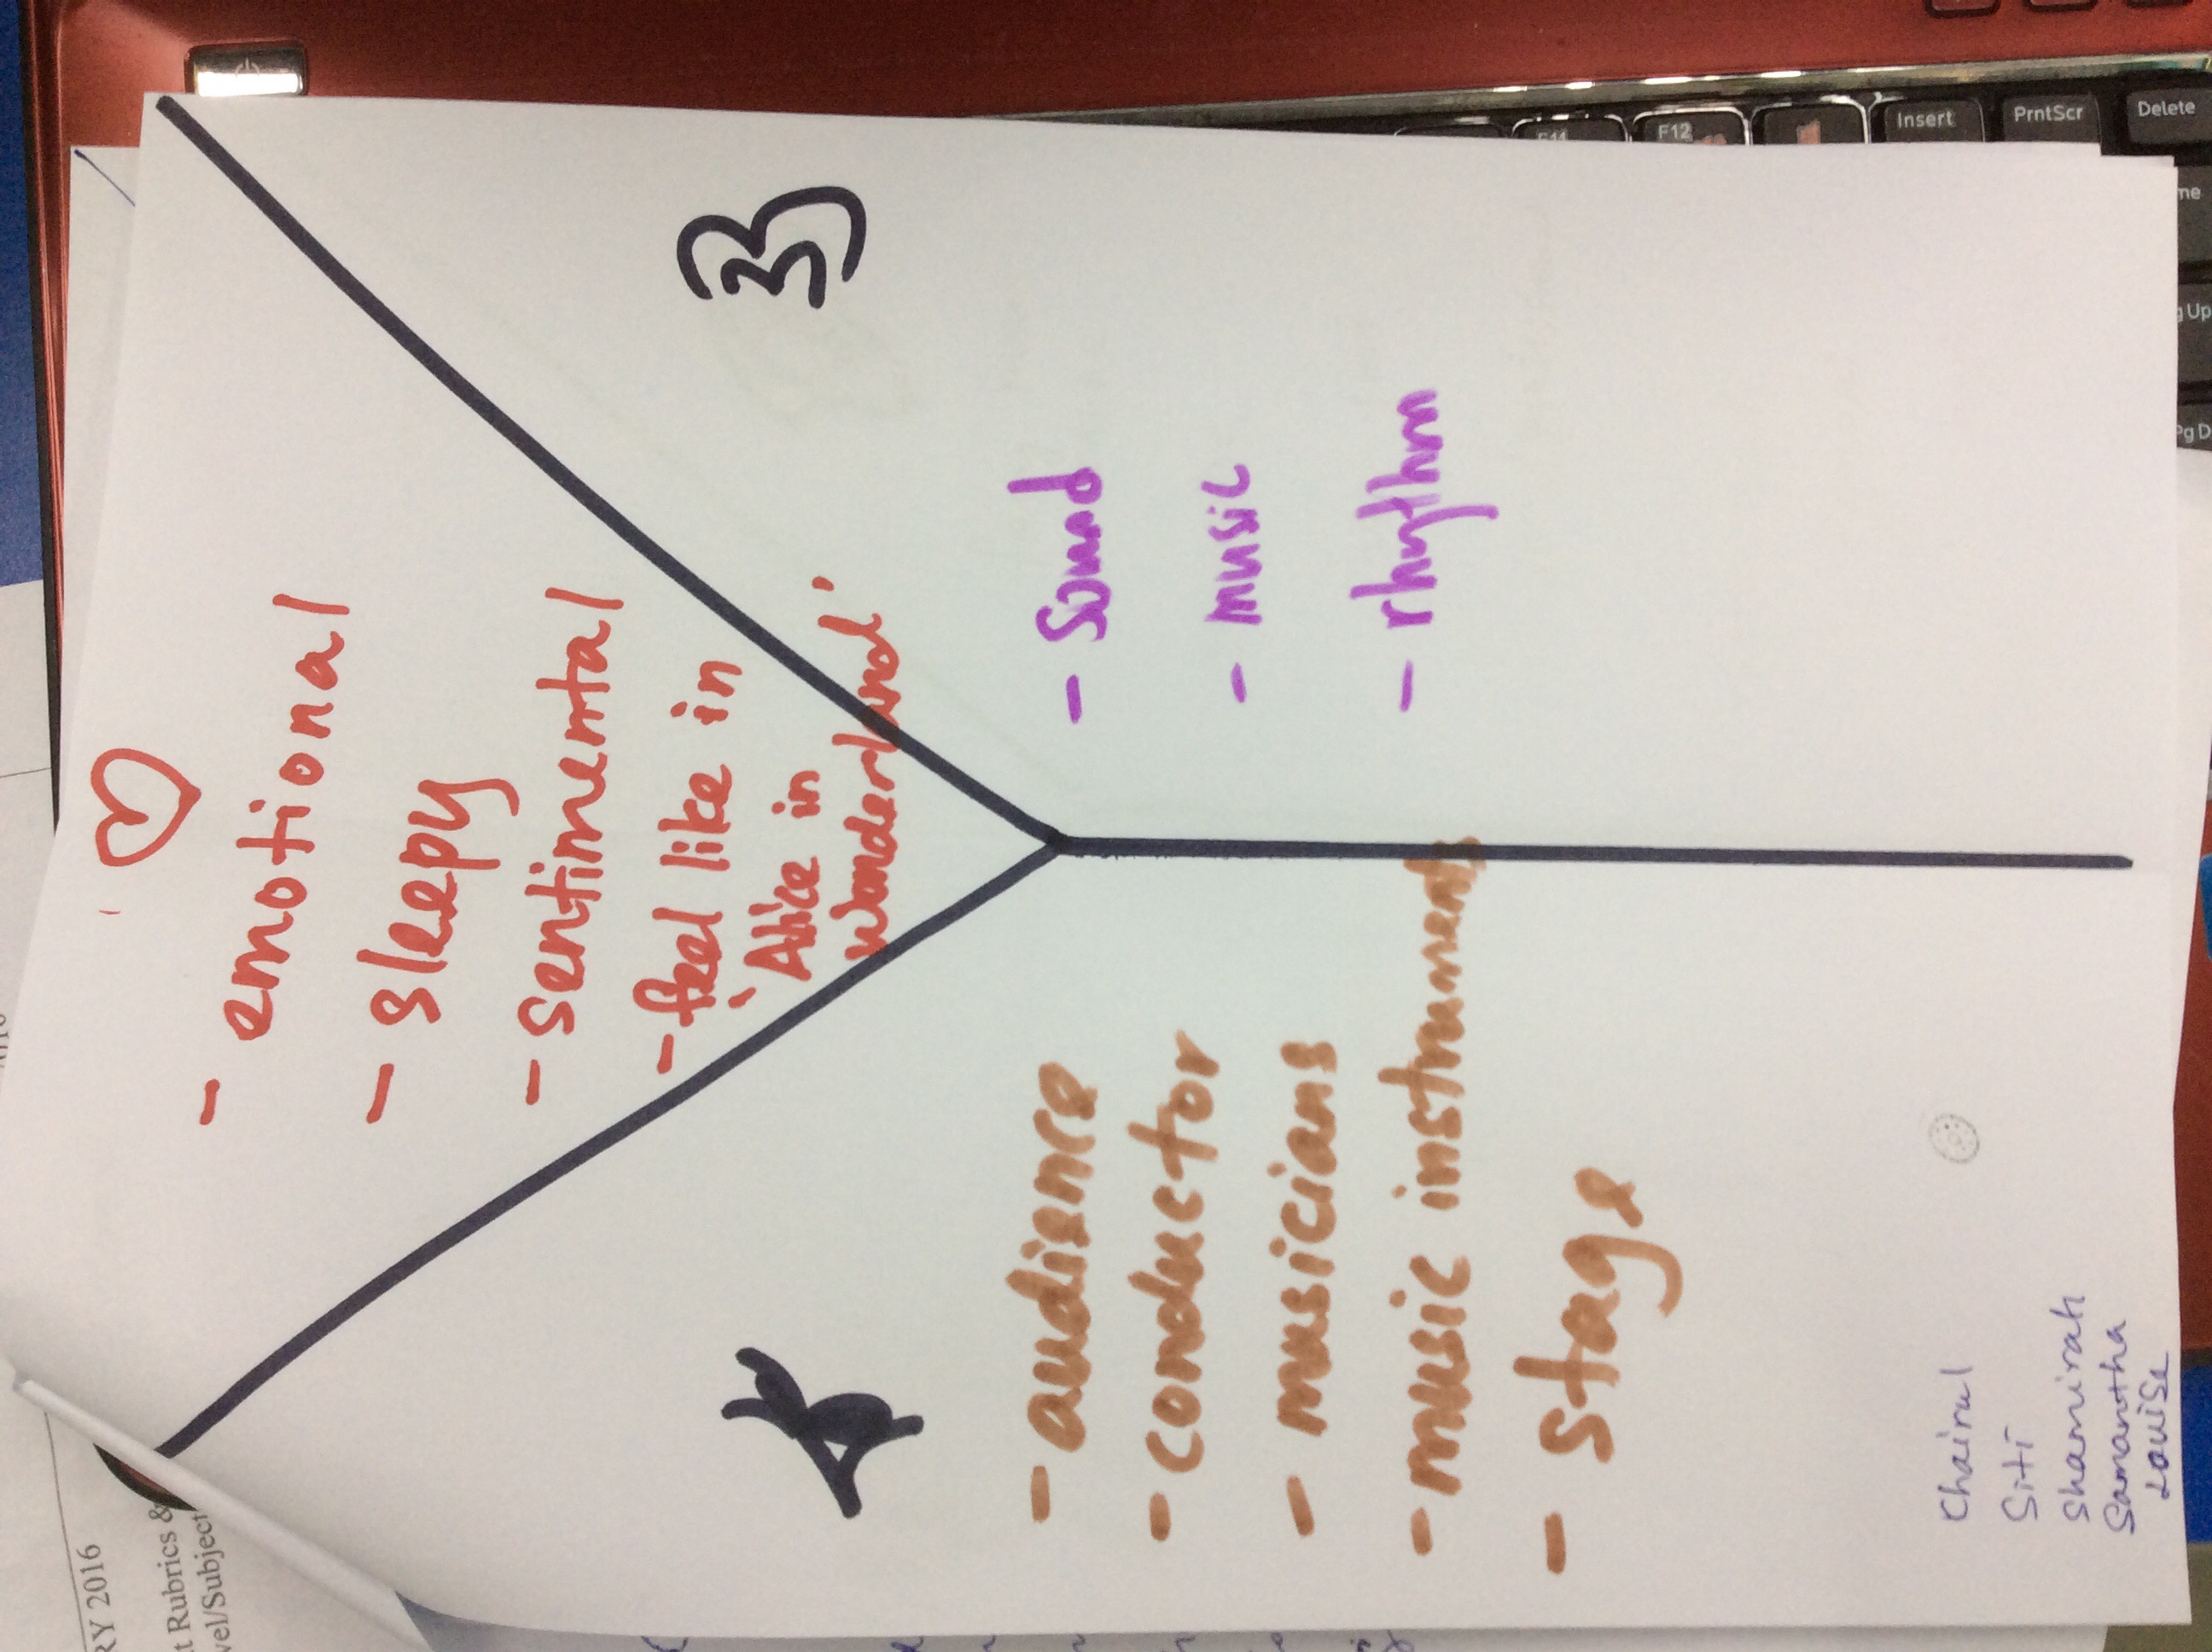 - emotional
- sleepy
- sentimental
- feel like in
'Alice in
Wonderland'
- audience
- conductor
- musicians
- music instruments
- stage
- sound
- music
- rhythm
Chairul
Siti
Shamirah
Samantha
Louise
RY 2016
t Rubrics &
vel/Subject
F11
F12
Insert
PrntScr
Delete
me
g Up
Pg D